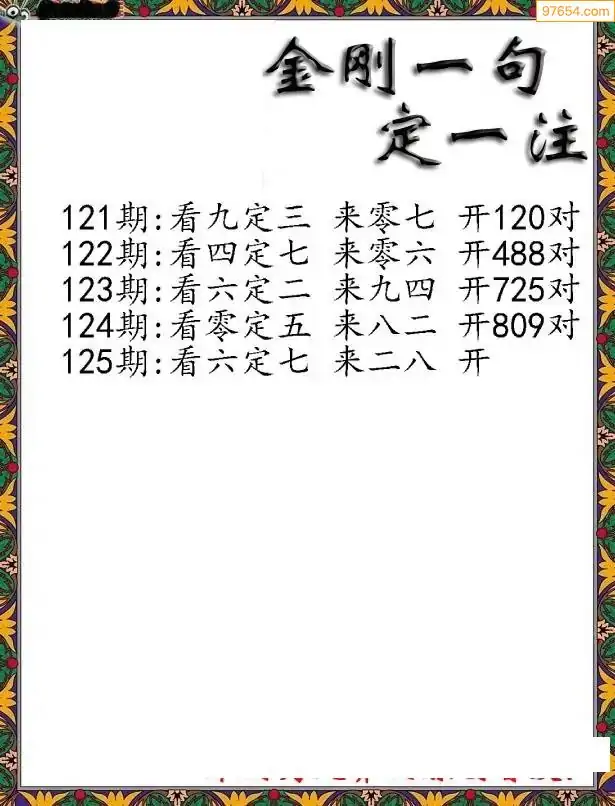 97654.com
金刚一句
定一注
121期:看九定三 来零七 开120对
122期:看四定七 来零六 开488对
123期:看六定二 来九四 开725对
124期:看零定五 来八二 开809对
125期:看六定七 来二八 开